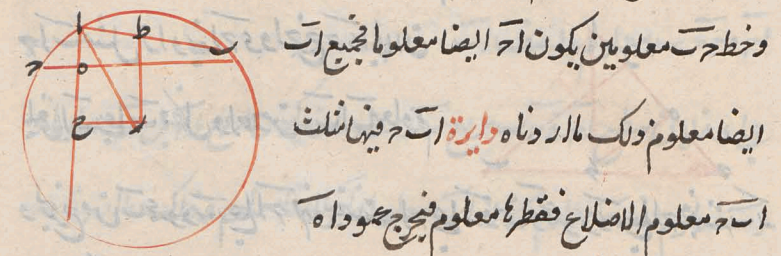 وخط حـ ب معلومين يكون ا حـ ايضا معلوما فجميع ا ب
ايضا معلوم وذلك ما اردناه دايرة ا ب حـ فيها مثلث
ا ب حـ معلوم الاضلاع فقطرها معلوم فيخرج عمود ا ه
ا ط ب
حـ ه
ح ر